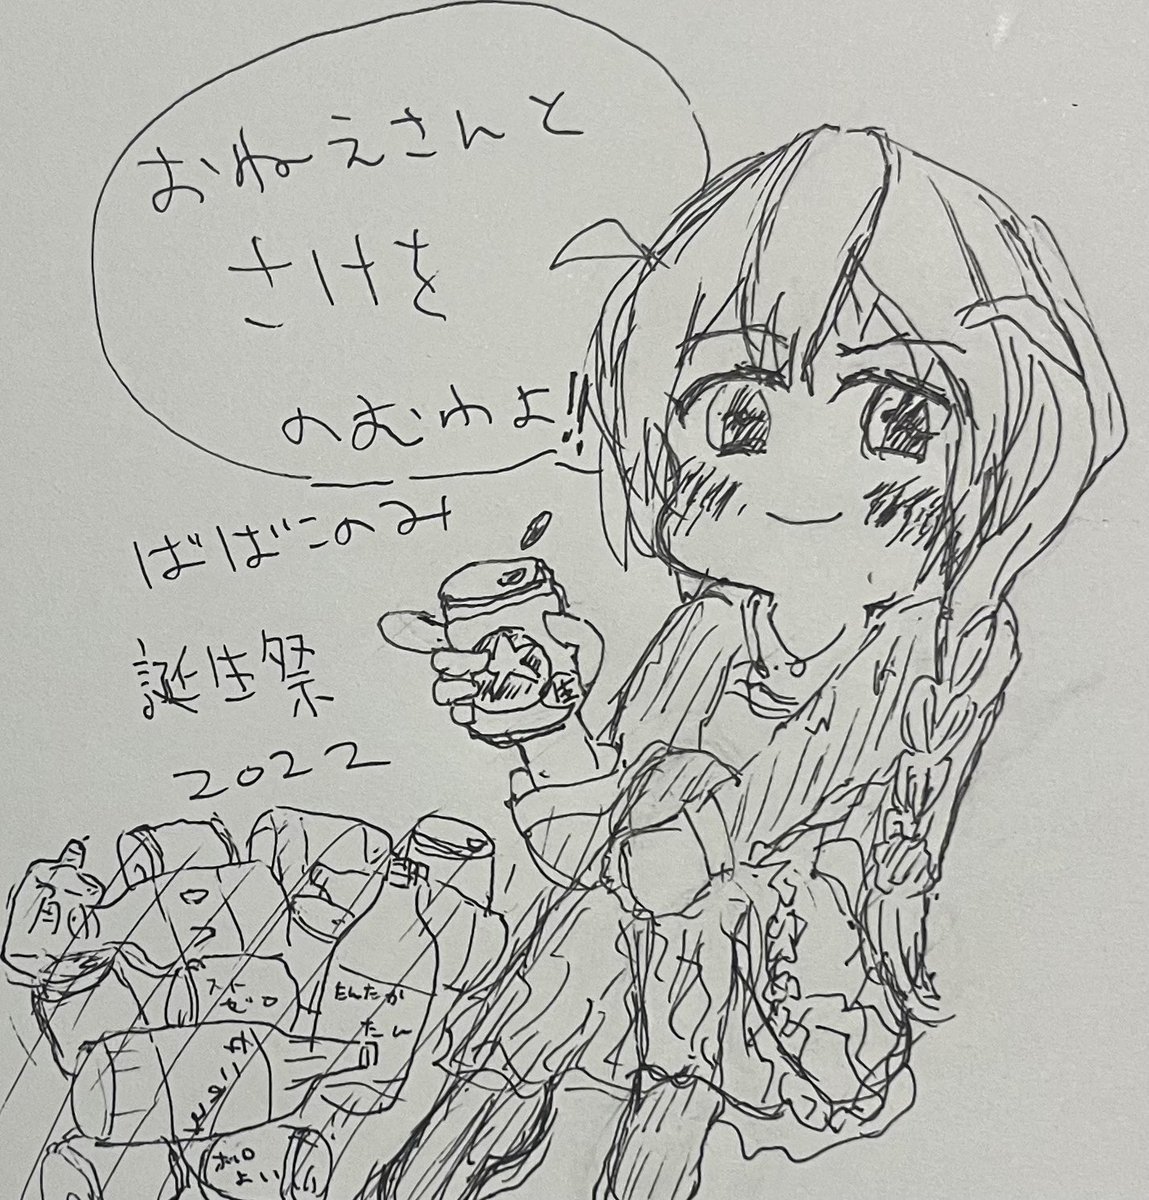 おねえさんと
さけを
のむわよ!!
ばばこのみ
誕生祭
2022
生
角
ストゼロ
たんたか
たん
ほろ
よい